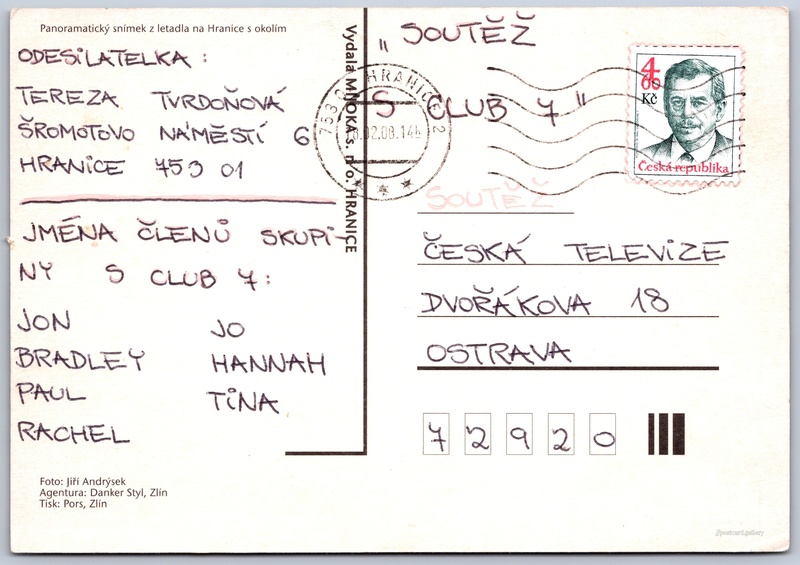 Panoramatický snímek z letadla na Hranice s okolím
ODESILATELKA :
TEREZA TVRDOŇOVÁ
ŠROMOTOVO NÁMĚSTÍ 6
HRANICE 753 01
JMÉNA ČLENŮ SKUPI-
NY S CLUB 7:
JON JO
BRADLEY HANNAH
PAUL TINA
RACHEL
Foto: Jiří Andrýsek
Agentura: Danker Styl, Zlín
Tisk: Pors, Zlín
Vydala MHOKA s. r. o. HRANICE
HRANICE 2
" SOUTĚŽ
S CLUB 7 "
4
00
Kč
Česká republika
SOUTĚŽ
ČESKÁ TELEVIZE
DVOŘÁKOVA 18
OSTRAVA
72920